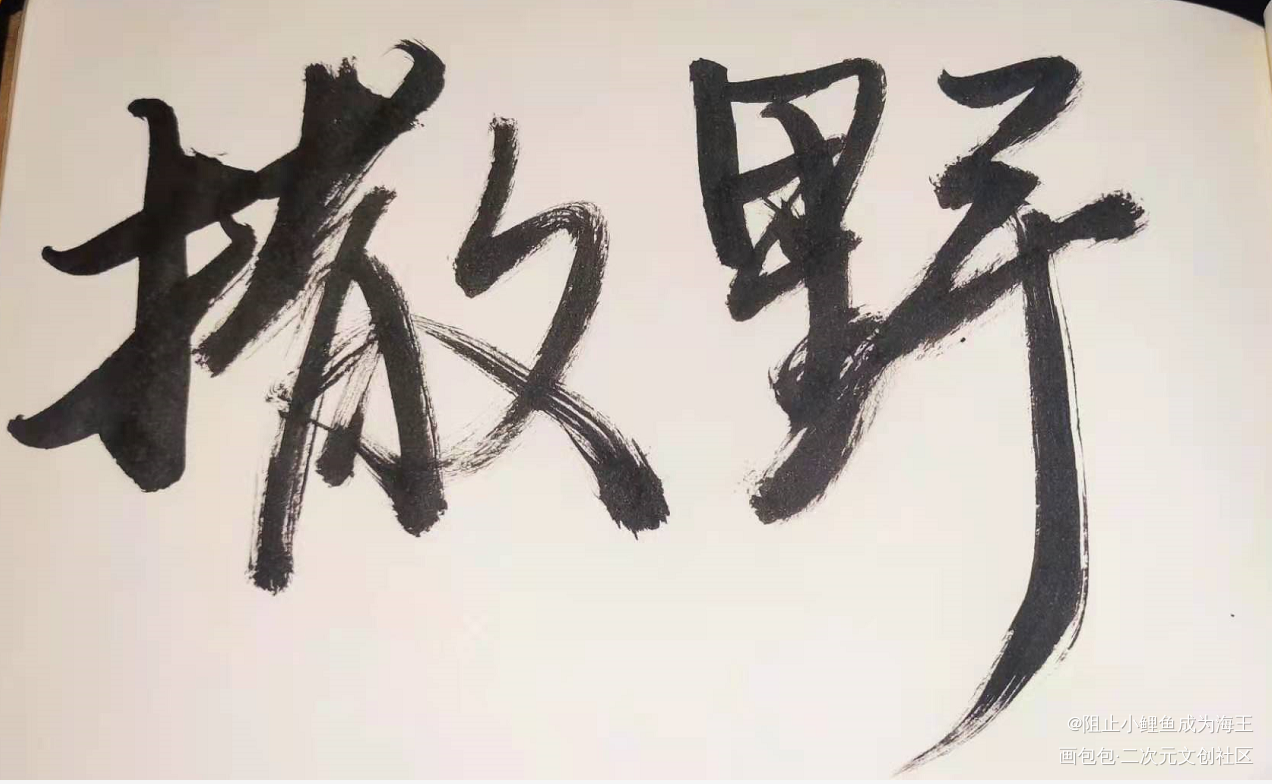 撒野
@阻止小鲤鱼成为海王
画包包·二次元文创社区